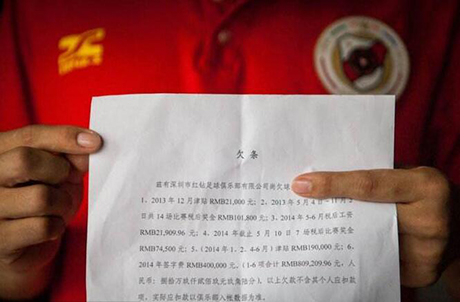 欠条
兹有深圳市红钻足球俱乐部有限公司尚欠球
1、2013年12月津贴RMB21,000元；2、2013年5月4日-11月2
日共14场比赛税后奖金RMB101,800元；3、2014年5-6月税后工资
RMB21,909.96元；4、2014年截止5月10日7场税后比赛奖金
RMB74,500元；5、(2014年1、2、4-6月)津贴RMB190,000元；6、
2014年签字费RMB400,000元。(1-6项合计RMB809,209.96元，人
民币：捌拾万玖仟贰佰玖元玖角陆分)，以上欠款不含其个人应扣款
项，实际应扣款以俱乐部入帐数据为准。